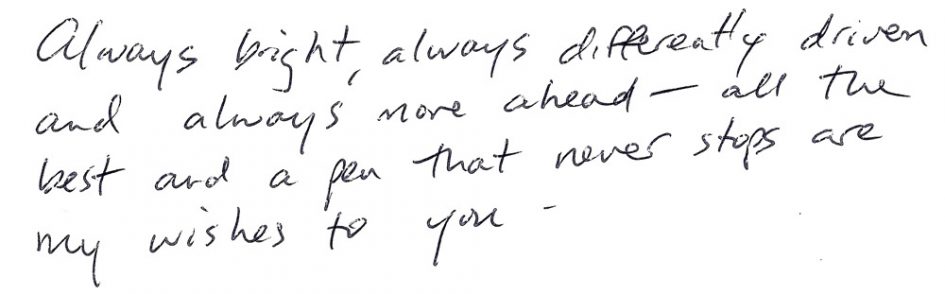 Always bright, always differently driven
and always more ahead — all the
best and a pen that never stops are
my wishes to you -